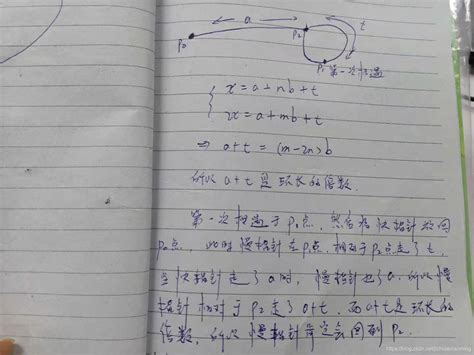 a
t
P₀
P₂
P₁ 第一次相遇
x = a + nb + t
2x = a + mb + t
⇒ a+t = (m-2n)b
所以 a+t 是环长的倍数.
第一次相遇于P₁点, 然后将快指针放回
P₀点. 此时慢指针在P₁点, 相对于P₂点走了t.
当快指针走了a时, 慢指针也走了a. 所以慢
指针相对于P₂走了a+t. 而a+t是环长的
倍数, 所以慢指针肯定会回到P₂.